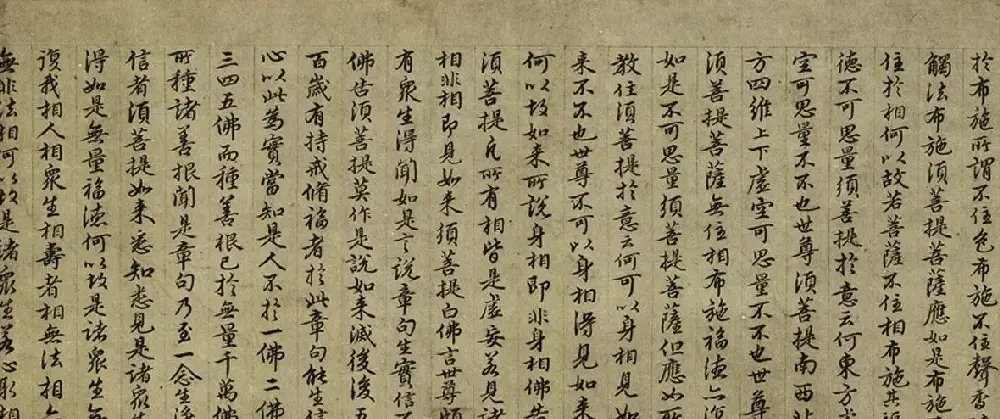 於布施所謂不住色布施不住聲香
觸法布施須菩提菩薩應如是布施
住於相何以故若菩薩不住相布施其
德不可思量須菩提於意云何東方
空可思量不不也世尊須菩提南西
方四維上下虛空可思量不不也世尊
須菩提菩薩無住相布施福德亦復
如是不可思量須菩提菩薩但應如所
教住須菩提於意云何可以身相見如
來不不也世尊不可以身相得見如來
何以故如來所說身相即非身相佛告
須菩提凡所有相皆是虛妄若見諸
相非相即見如來須菩提白佛言世尊頗
有眾生得聞如是言說章句生實信不
佛告須菩提莫作是說如來滅後後五
百歲有持戒脩福者於此章句能生信
心以此為實當知是人不於一佛二佛
三四五佛而種善根已於無量千萬佛
所種諸善根聞是章句乃至一念生淨
信者須菩提如來悉知悉見是諸眾生
得如是無量福德何以故是諸眾生無
復我相人相眾生相壽者相無法相
無非法相何以故是諸眾生若心取相